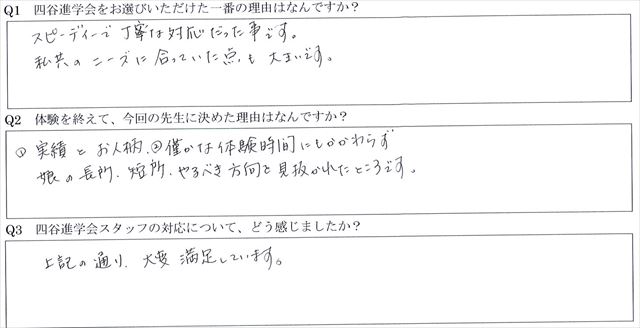 Q1 四谷進学会をお選びいただけた一番の理由はなんですか？
スピーディーで丁寧な対応だった事です。
私共のニーズに合っていた点も大きいです。
Q2 体験を終えて、今回の先生に決めた理由はなんですか？
①実績とお人柄、②僅かな体験時間にもかかわらず
娘の長所、短所、やるべき方向を見抜かれたところです。
Q3 四谷進学会スタッフの対応について、どう感じましたか？
上記の通り、大変満足しています。